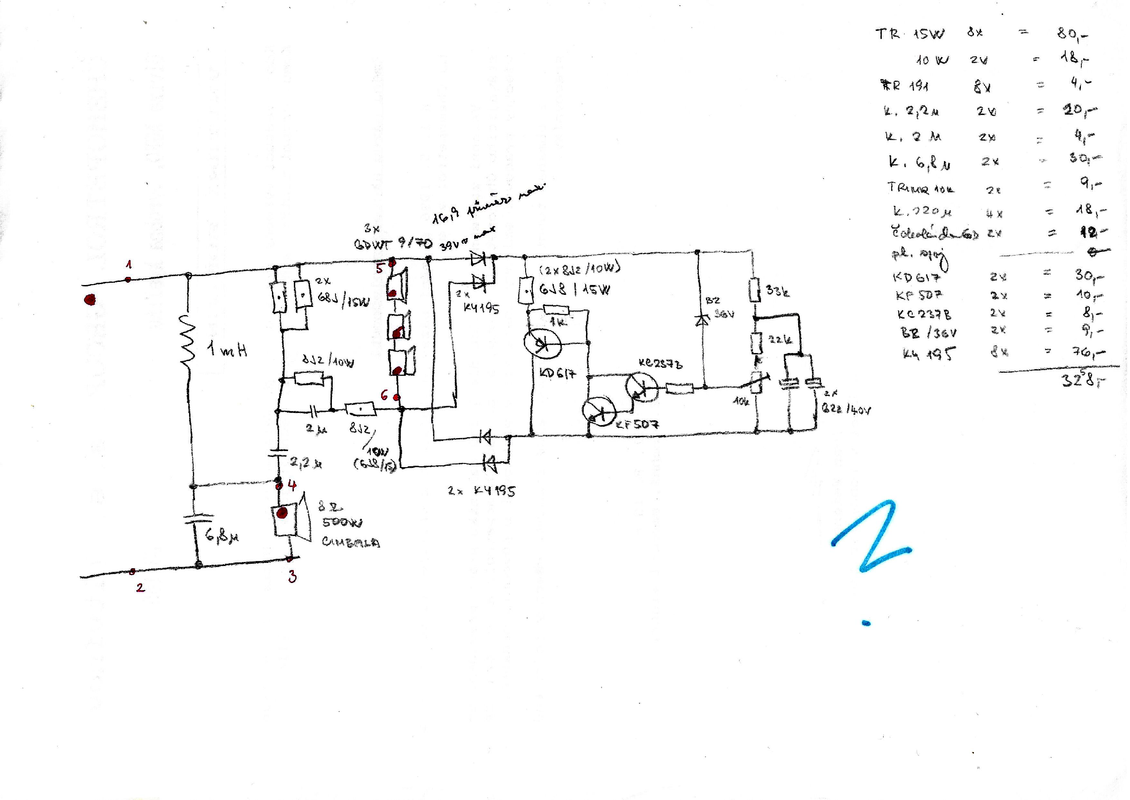 TR 15W 8x = 80,-
10W 2x = 18,-
TR 191 8x = 4,-
K. 2,2µ 2x = 20,-
K. 2µ 2x = 4,-
K. 6,8µ 2x = 30,-
TRIMR 10K 2x = 9,-
K. 220µ 4x = 18,-
2x = 12,-
pl. spoj
KD617 2x = 30,-
KF507 2x = 10,-
KC237B 2x = 8,-
BZ/36V 2x = 9,-
KY195 8x = 76,-
328,-
16,9 max.
3x
GDWT 9/70
39V max
1
5
2x
68Ω/15W
2x
KY195
(2x8Ω2/10W)
6Ω8/15W
1k
BZ
36V
33k
22k
1mH
KD617
KC237B
8Ω2/10W
6
10k
2x
G22/40V
KF507
2µ
8Ω2/
10W
(6Ω8/15)
2,2µ
2x KY195
4
8Ω
500W
CIMBALA
6,8µ
2
3
?